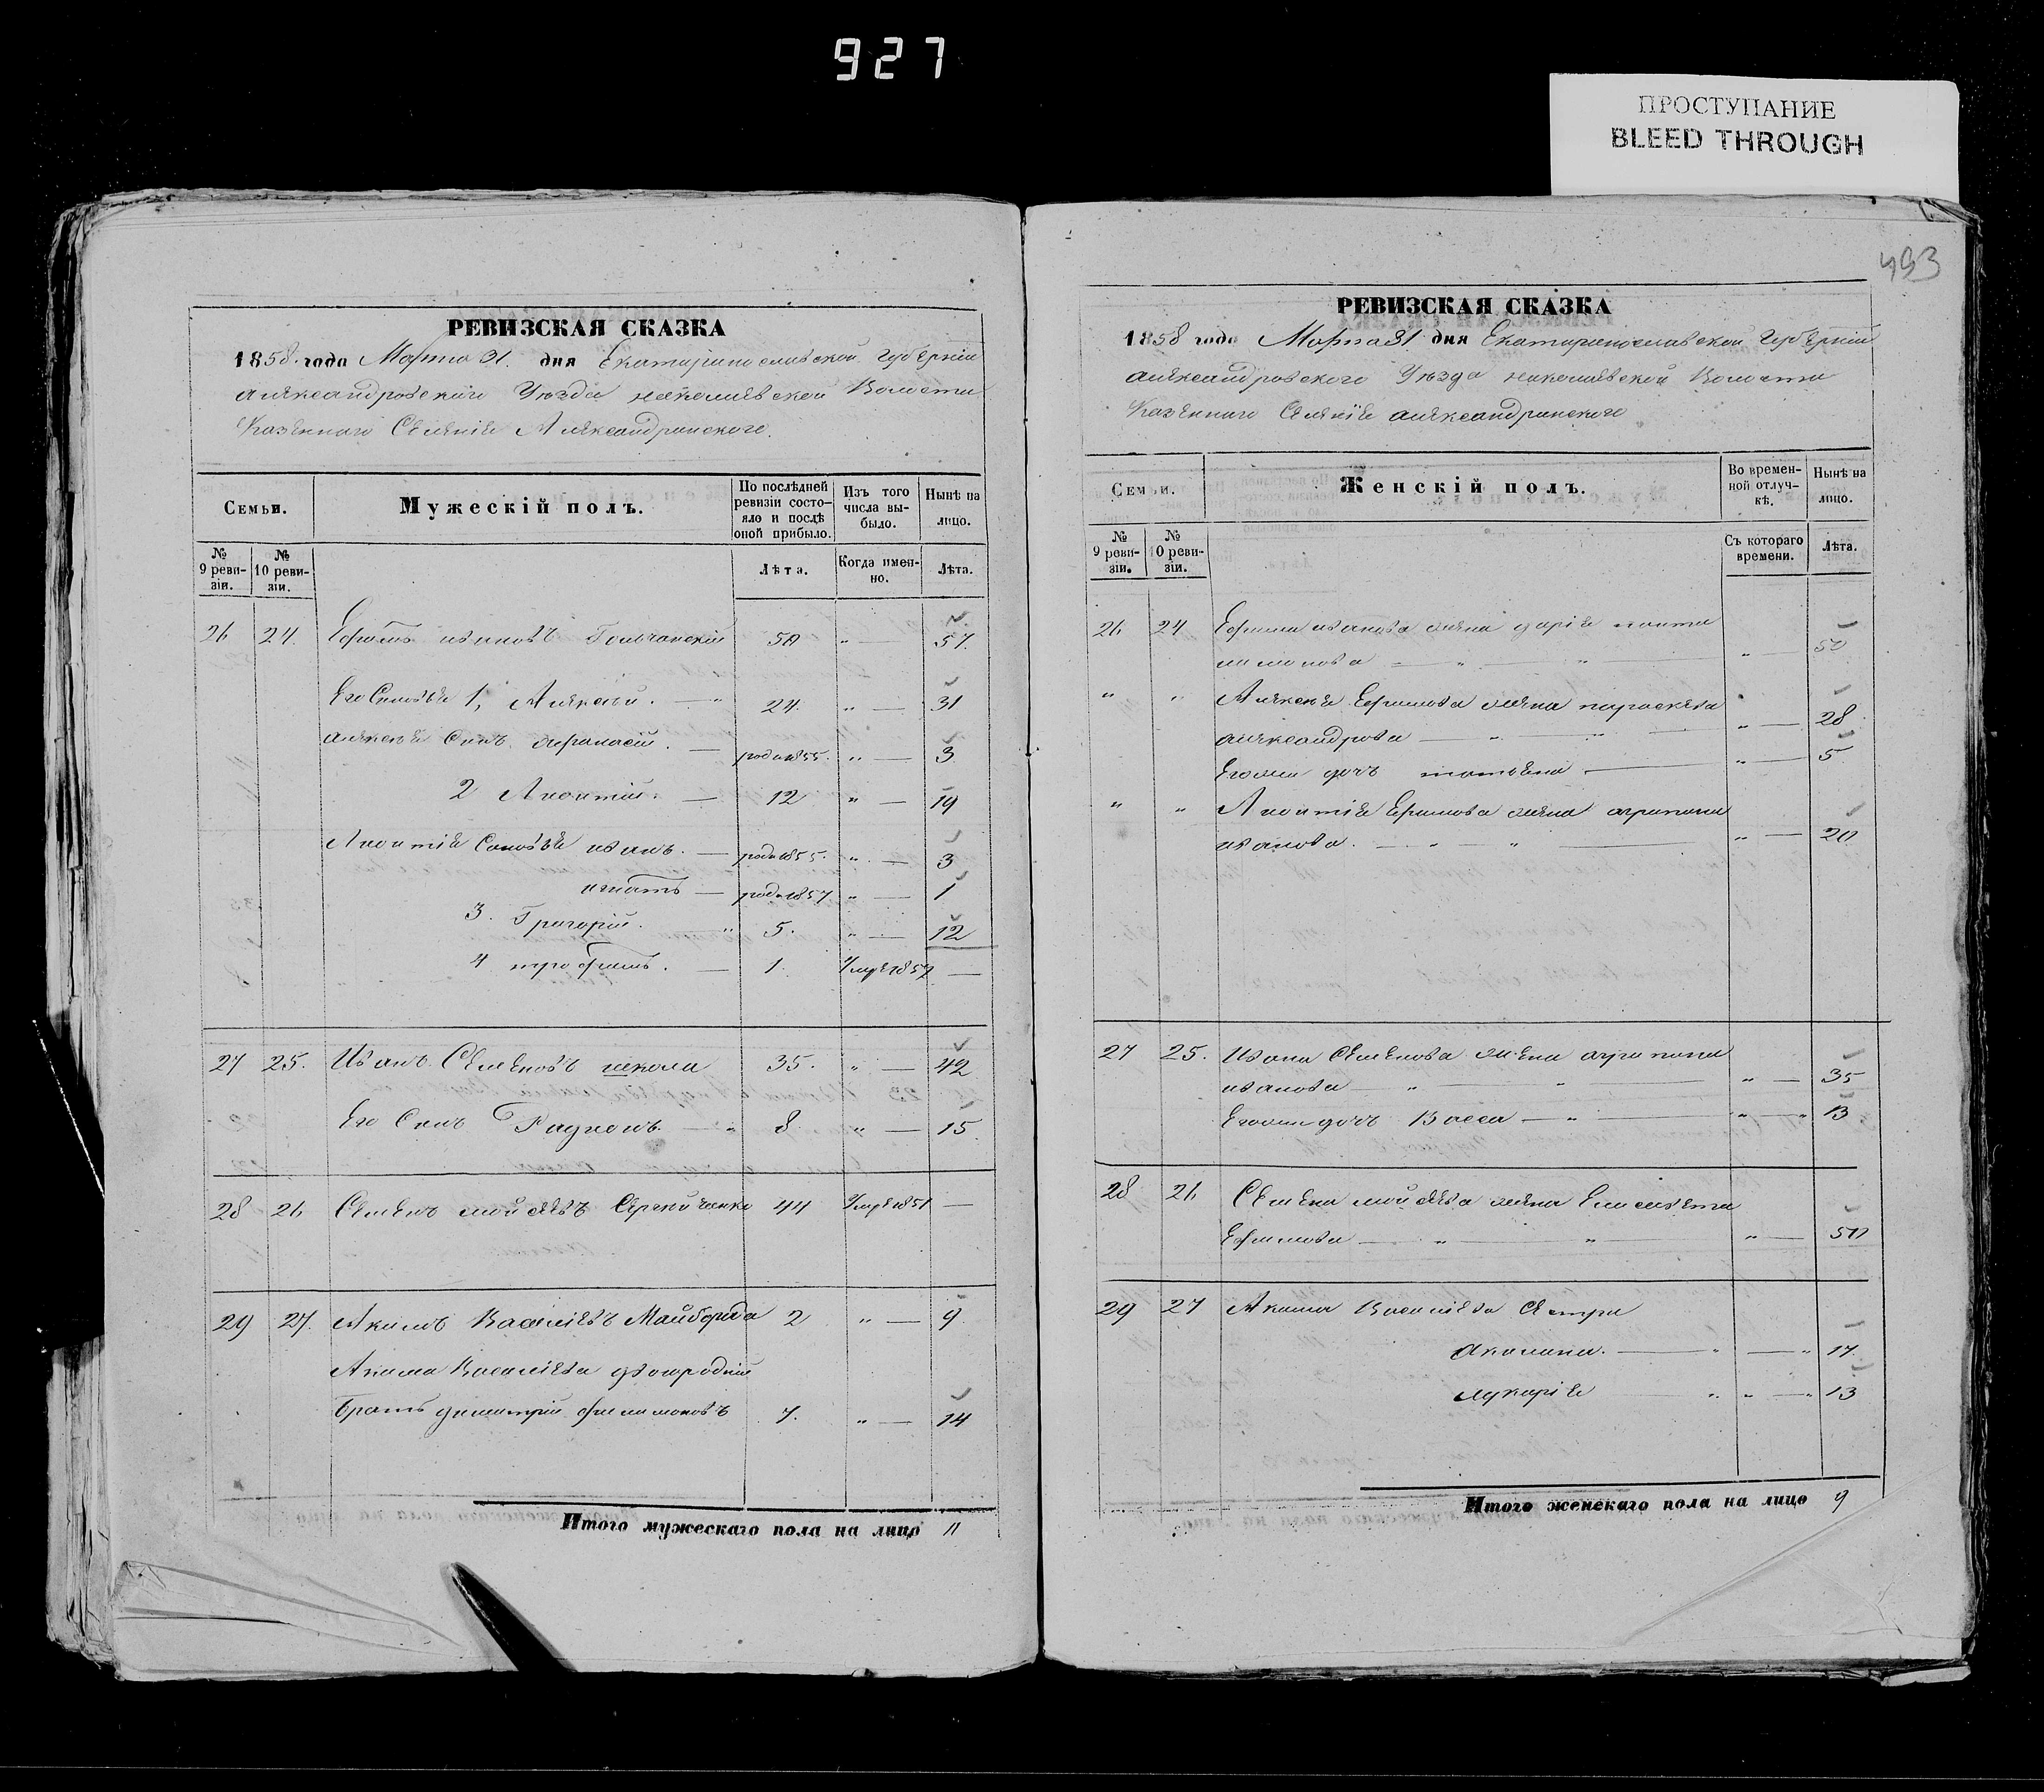 927
ПРОСТУПАНИЕ
BLEED THROUGH
493
РЕВИЗСКАЯ СКАЗКА
1858 года Марта 31. дня Екатеринославской Губернии
Александровского Уезда николаевской Волости
Казенного Селения Александринского.
Семьи.
Мужескій полъ.
По послѣдней ревизіи состояло и послѣ оной прибыло.
Изъ того числа выбыло.
Нынѣ на лицо.
№ 9 ревизіи.
№ 10 ревизіи.
Лѣта.
Когда именно.
Лѣта.
26 24. Ефимъ ивановъ 50 " — 57.
Его Сыновья 1, Алексей. — " 24. " — 31
алексея Сынъ афанасий. — роди 1855. " — 3
2 Леонтий. — 12 " — 19
Леонтия Сыновья иванъ. — роди 1855. " — 3
игнатъ — роди 1857 " — 1
3. Григорий. " 5. " — 12
4 трофимъ. — 1. —
27 25. Иванъ Семеновъ школа 35. " — 42
Его Сынъ Радионъ. — " 8. " — 15.
28 26 Семенъ мойсеевъ Сергийченко 44 Умре 1851 —
29 27. Акимъ Василиевъ Майборода 2 " — 9
Акима Василиева двоюродный
Братъ димитрий филимоновъ 7. " — 14
Итого мужескаго пола на лицо 11
РЕВИЗСКАЯ СКАЗКА
1858 года Марта 31 дня Екатеринославской Губернии
александровского Уезда николаевской Волости
Казенного Селения александринского
Семьи.
Женскій полъ.
Во временной отлучкѣ.
Нынѣ на лицо.
№ 9 ревизіи.
№ 10 ревизіи.
Съ котораго времени.
Лѣта.
26 24 Ефима иванова жена дария панте
лимонова — " — " " — 50
" " Алексея Ефимова жена параскева
александрова — " — " " — 28
Егоже дочь татьяна — " — 5
" " Леонтия Ефимова жена агрипина
иванова. — " — " " — 20
27 25. Ивана Семенова жена агрипина
иванова — " — " " — 35
Егоже дочь Васса — " — " — " 13
28 26 Семена мойсеева жена Елисавета
Ефимова — " — " " — 50
29 27 Акима Василиева Сестры
Акилина. — " — " 17.
лукария — " " — " 13
Итого женскаго пола на лицо 9